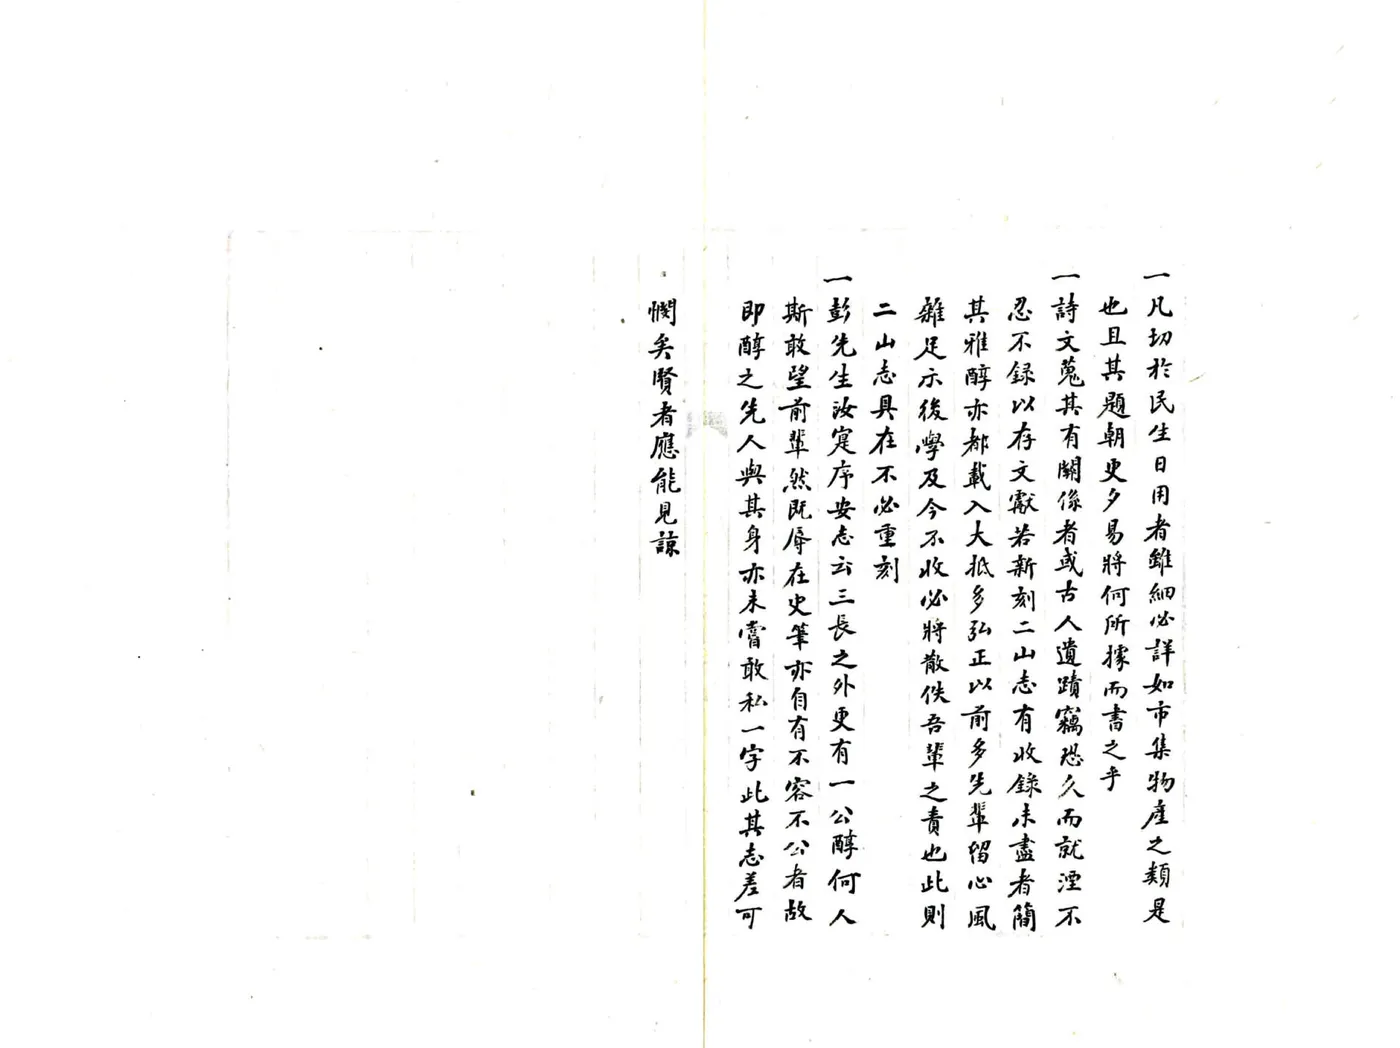 一凡切於民生日用者雖細必詳如市集物產之類是
也且其題朝更夕易將何所據而書之乎
一詩文蒐其有關係者或古人遺蹟竊恐久而就湮不
忍不録以存文獻若新刻二山志有收錄未盡者簡
其雅醇亦都載入大抵多弘正以前多先輩留心風
雖足示後學及今不收必將散佚吾輩之責也此則
二山志具在不必重刻
一彭先生汝寔序安志云三長之外更有一公醇何人
斯敢望前輩然既辱在史筆亦自有不容不公者故
即醇之先人與其身亦未嘗敢私一字此其志差可
憫矣賢者應能見諒